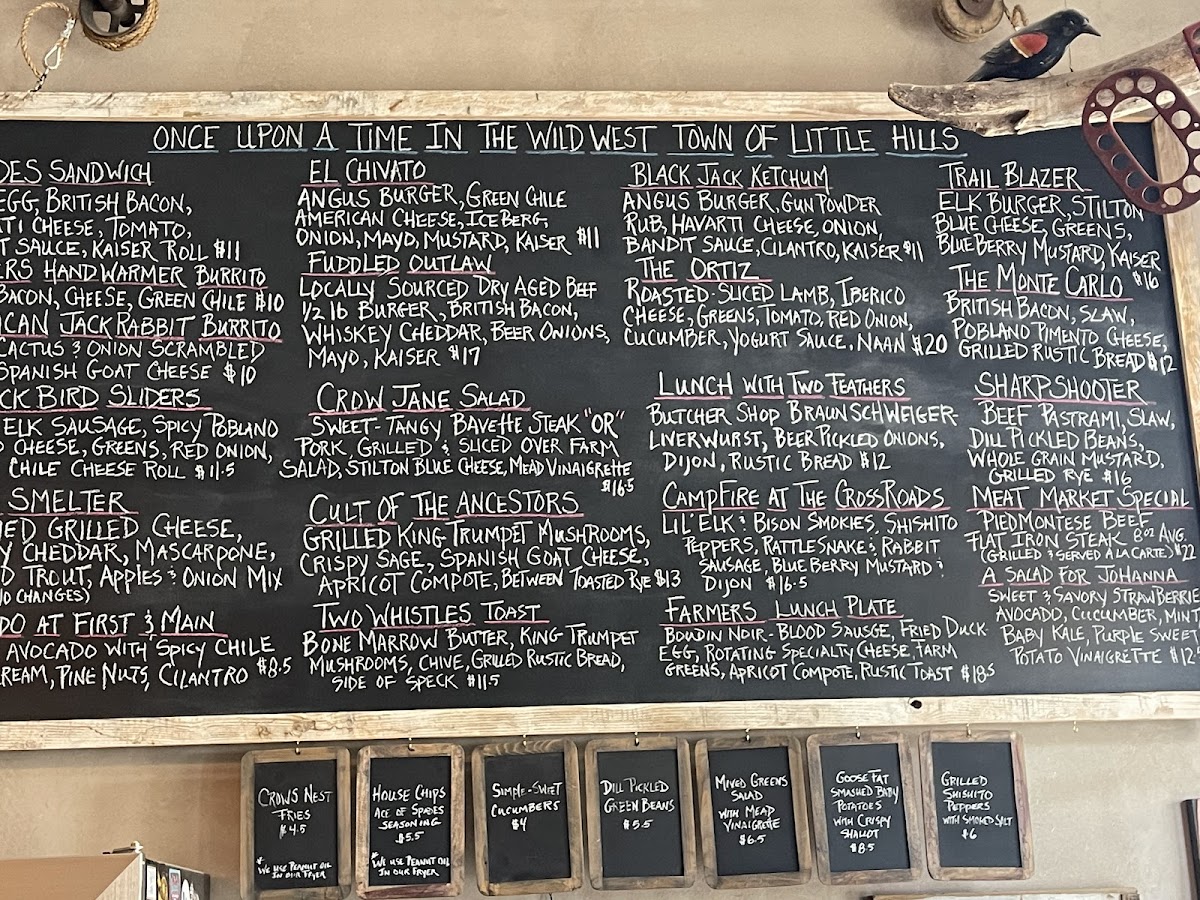 ONCE UPON A TIME IN THE WILD WEST TOWN OF LITTLE HILLS
DES SANDWICH
EGG, BRITISH BACON,
TI CHEESE, TOMATO,
T SAUCE, KAISER ROLL $11
ERS HANDWARMER BURRITO
BACON, CHEESE, GREEN CHILE $10
CAN JACK RABBIT BURRITO
CACTUS & ONION SCRAMBLED
SPANISH GOAT CHEESE $10
CK BIRD SLIDERS
ELK SAUSAGE, SPICY POBLANO
CHEESE, GREENS, RED ONION,
CHILE CHEESE ROLL $11.5
SMELTER
IED GRILLED CHEESE,
Y CHEDDAR, MASCARPONE,
D TROUT, APPLES & ONION MIX
O CHANGES)
DO AT FIRST & MAIN
AVOCADO WITH SPICY CHILE
REAM, PINE NUTS, CILANTRO $8.5
EL CHIVATO
ANGUS BURGER, GREEN CHILE
AMERICAN CHEESE, ICEBERG,
ONION, MAYO, MUSTARD, KAISER $11
FUDDLED OUTLAW
LOCALLY SOURCED DRY AGED BEEF
1/2 lb BURGER, BRITISH BACON,
WHISKEY CHEDDAR, BEER ONIONS,
MAYO, KAISER $17
CROW JANE SALAD
SWEET-TANGY BAVETTE STEAK "OR"
PORK, GRILLED & SLICED OVER FARM
SALAD, STILTON BLUE CHEESE, MEAD VINAIGRETTE
$16.5
CULT OF THE ANCESTORS
GRILLED KING TRUMPET MUSHROOMS,
CRISPY SAGE, SPANISH GOAT CHEESE,
APRICOT COMPOTE, BETWEEN TOASTED RYE $13
TWO WHISTLES TOAST
BONE MARROW BUTTER, KING TRUMPET
MUSHROOMS, CHIVE, GRILLED RUSTIC BREAD,
SIDE OF SPECK $11.5
BLACK JACK KETCHUM
ANGUS BURGER, GUN POWDER
RUB, HAVARTI CHEESE, ONION,
BANDIT SAUCE, CILANTRO, KAISER $11
THE ORTIZ
ROASTED-SLICED LAMB, IBERICO
CHEESE, GREENS, TOMATO, RED ONION,
CUCUMBER, YOGURT SAUCE, NAAN $20
LUNCH WITH TWO FEATHERS
BUTCHER SHOP BRAUNSCHWEIGER-
LIVERWURST, BEER PICKLED ONIONS,
DIJON, RUSTIC BREAD $12
CAMPFIRE AT THE CROSSROADS
LIL' ELK & BISON SMOKIES, SHISHITO
PEPPERS, RATTLESNAKE & RABBIT
SAUSAGE, BLUEBERRY MUSTARD &
DIJON $16.5
FARMERS LUNCH PLATE
BOUDIN NOIR-BLOOD SAUSGE, FRIED DUCK
EGG, ROTATING SPECIALTY CHEESE, FARM
GREENS, APRICOT COMPOTE, RUSTIC TOAST $18.5
TRAIL BLAZER
ELK BURGER, STILTON
BLUE CHEESE, GREENS,
BLUEBERRY MUSTARD, KAISER
$16
THE MONTE CARLO
BRITISH BACON, SLAW,
POBLANO PIMENTO CHEESE,
GRILLED RUSTIC BREAD $12
SHARPSHOOTER
BEEF PASTRAMI, SLAW,
DILL PICKLED BEANS,
WHOLE GRAIN MUSTARD,
GRILLED RYE $16
MEAT MARKET SPECIAL
PIEDMONTESE BEEF
FLAT IRON STEAK 8 oz AVG.
(GRILLED & SERVED A LA CARTE) $22
A SALAD FOR JOHANNA
SWEET & SAVORY STRAWBERRIE
AVOCADO, CUCUMBER, MINT
BABY KALE, PURPLE SWEET
POTATO VINAIGRETTE $12.5
CROWS NEST
FRIES
$4.5
*
WE USE PEANUT OIL
IN OUR FRYER
HOUSE CHIPS
ACE OF SPADES
SEASONING
$5.5
*
WE USE PEANUT OIL
IN OUR FRYER
SIMPLE-SWEET
CUCUMBERS
$4
DILL PICKLED
GREEN BEANS
$5.5
MIXED GREENS
SALAD
WITH MEAD
VINAIGRETTE
$6.5
GOOSE FAT
SMASHED BABY
POTATOES
WITH CRISPY
SHALLOT
$8.5
GRILLED
SHISHITO
PEPPERS
WITH SMOKED SALT
$6